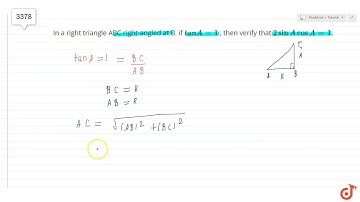 3378
Doubtnut • Tutorial
In a right triangle ABC right-angled at B. if tan A = 1, then verify that 2 sin A cos A = 1.
tan A = 1 = BC / AB
C
k
A k B
BC = k
AB = k
AC = √(AB)² + (BC)²